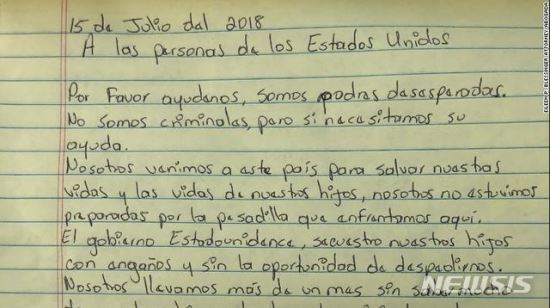 15 de Julio del 2018
A las personas de los Estados Unidos
Por Favor ayudenos, somos padras desesperadas.
No somos criminales, pero si necesitamos su
ayuda.
Nosotros venimos a este país para salvar nuestras
vidas y las vidas de nuestros hijos, nosotros no estuvimos
preparadas por la pesadilla que enfrentamos aquí.
El gobierno Estadounidence, secuestro nuestros hijos
con engaños y sin la oportunidad de despedirnos.
Nosotros llevamos más de un mes sin saber mucho
NEWSIS